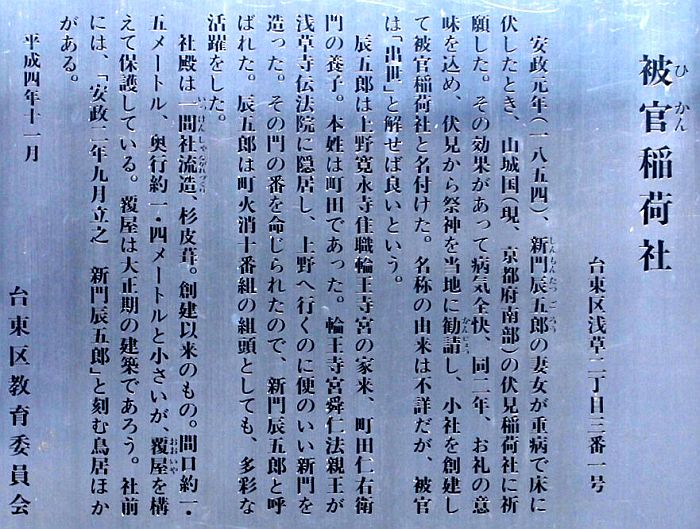 被官稲荷社
台東区浅草二丁目三番一号
安政元年(一八五四)、新門辰五郎の妻女が重病で床に
伏したとき、山城国(現、京都府南部)の伏見稲荷社に祈
願した。その効果があって病気全快、同二年、お礼の意
味を込め、伏見から祭神を当地に勧請し、小社を創建し
て被官稲荷社と名付けた。名称の由来は不詳だが、被官
は「出世」と解せば良いという。
辰五郎は上野寛永寺住職輪王寺宮の家来、町田仁右衛
門の養子。本姓は町田であった。輪王寺宮舜仁法親王が
浅草寺伝法院に隠居し、上野へ行くのに便のいい新門を
造った。その門の番を命じられたので、新門辰五郎と呼
ばれた。辰五郎は町火消十番組の組頭としても、多彩な
活躍をした。
社殿は一間社流造、杉皮葺。創建以来のもの。間口約一・
五メートル、奥行約一・四メートルと小さいが、覆屋を構
えて保護している。覆屋は大正期の建築であろう。社前
には、「安政二年九月立之 新門辰五郎」と刻む鳥居ほか
がある。
平成四年十一月
台東区教育委員会